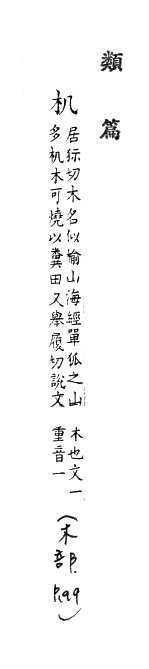 類篇
机
居狋切木名似榆山海經單狐之山
多机木可燒以糞田又舉履切說文
木也文一
重音一
(木部P.199)